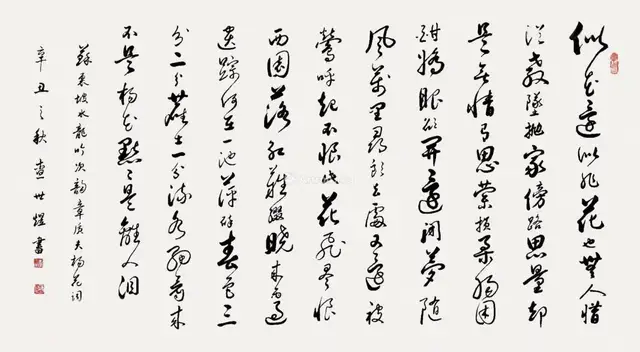 似花還似非花也無人惜
從教墜拋家傍路思量却
是無情有思縈損柔腸困
酣嬌眼欲開還閉夢隨
風萬里尋郎去處又還被
鶯呼起不恨此花飛盡恨
西園落紅難綴曉來雨過
遺踪何在一池萍碎春色三
分二分塵土一分流水細看來
不是楊花點點是離人淚
蘇東坡水龍吟次韻章质夫楊花詞
辛丑之秋查世煜書